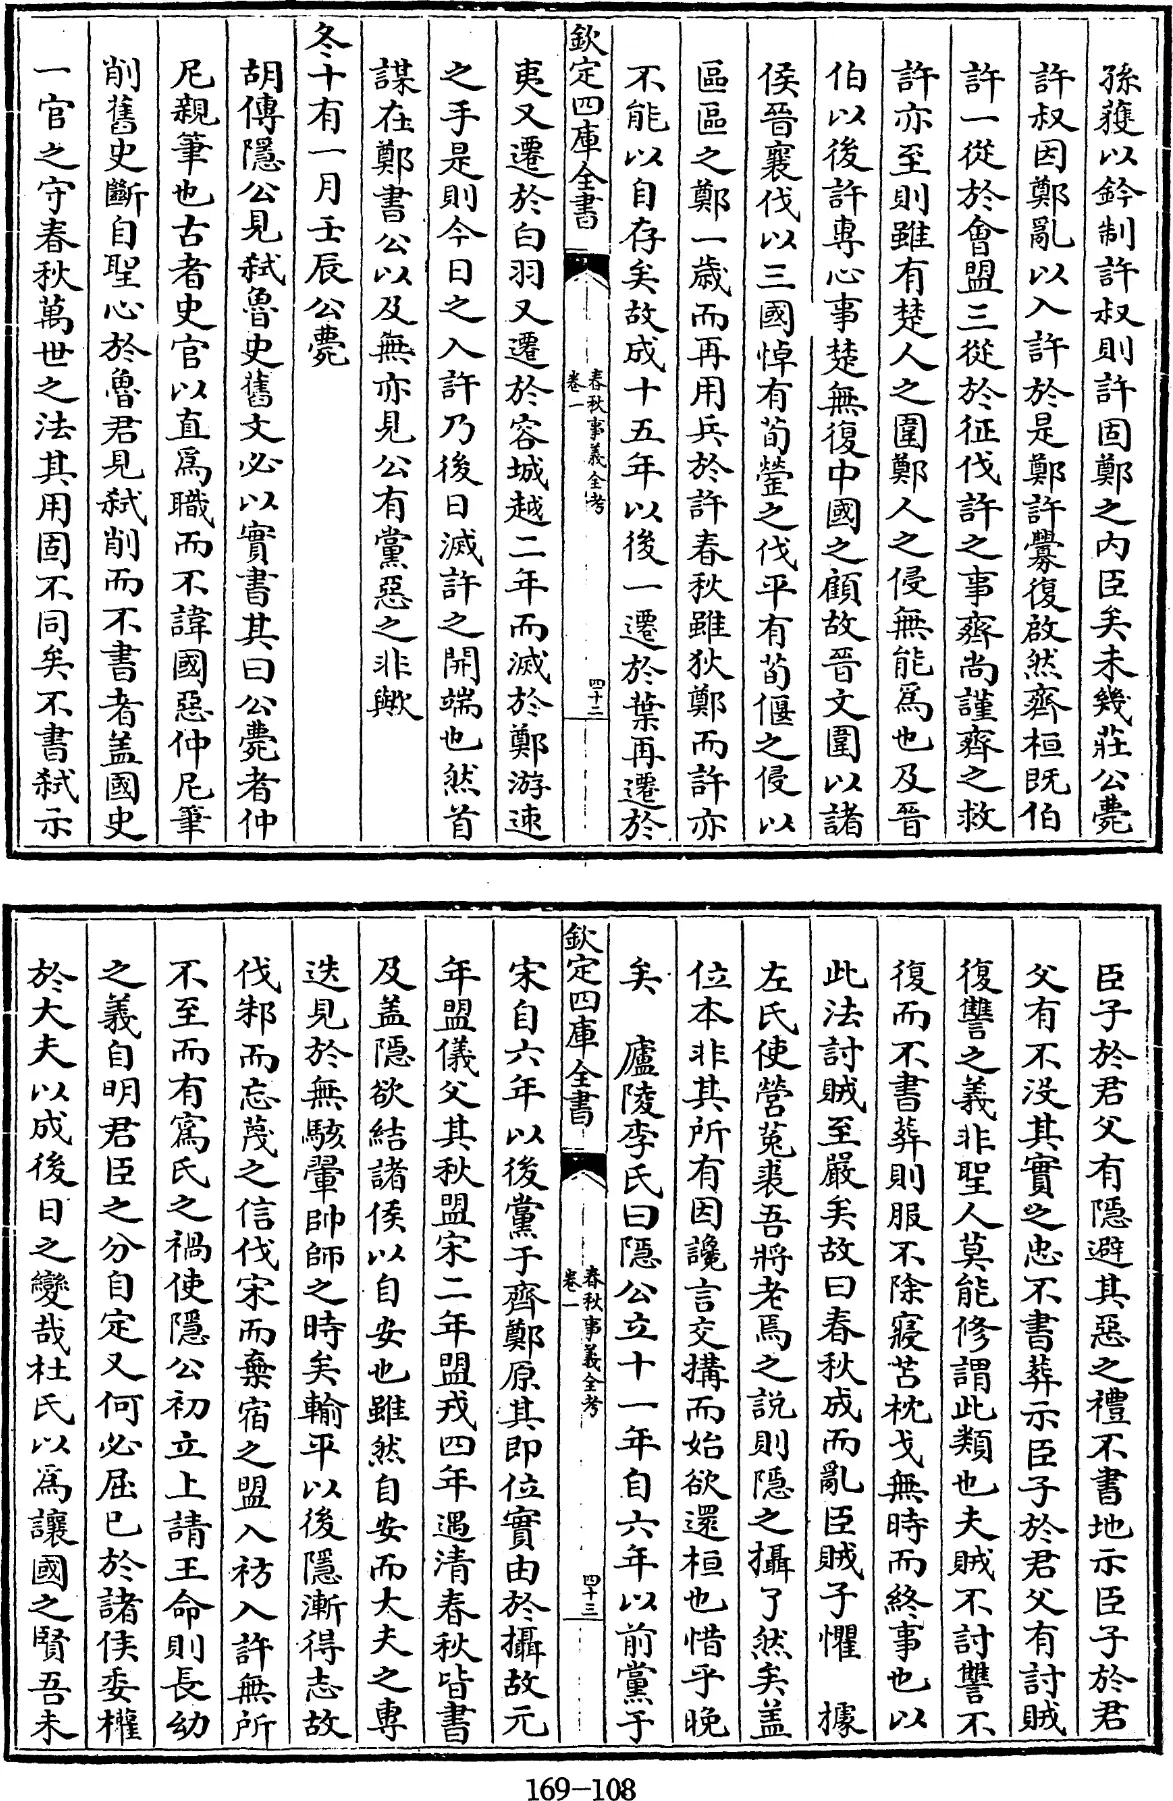 孫獲以鈐制許叔則許固鄭之内臣矣未幾莊公薨
許叔因鄭亂以入許於是鄭許釁復啟然齊桓既伯
許一從於會盟三從於征伐許之事齊尚謹齊之救
許亦至則雖有楚人之圍鄭人之侵無能爲也及晉
伯以後許專心事楚無復中國之顧故晉文圍以諸
侯晉襄伐以三國悼有荀罃之伐平有荀偃之侵以
區區之鄭一歲而再用兵於許春秋雖狄鄭而許亦
不能以自存矣故成十五年以後一遷於葉再遷於
欽定四庫全書
春秋事義全考
卷一
四十二
夷又遷於白羽又遷於容城越二年而滅於鄭游速
之手是則今日之入許乃後日滅許之開端也然首
謀在鄭書公以及無亦見公有黨惡之非歟
冬十有一月壬辰公薨
胡傳隱公見弑魯史舊文必以實書其曰公薨者仲
尼親筆也古者史官以直爲職而不諱國惡仲尼筆
削舊史斷自聖心於魯君見弑削而不書者盖國史
一官之守春秋萬世之法其用固不同矣不書弑示
臣子於君父有隱避其惡之禮不書地示臣子於君
父有不没其實之忠不書葬示臣子於君父有討賊
復讐之義非聖人莫能修謂此類也夫賊不討讐不
復而不書葬則服不除寢苫枕戈無時而終事也以
此法討賊至嚴矣故曰春秋成而亂臣賊子懼　據
左氏使營菟裘吾將老焉之說則隱之攝了然矣盖
位本非其所有因讒言交搆而始欲還桓也惜乎晚
矣　廬陵李氏曰隱公立十一年自六年以前黨于
欽定四庫全書
春秋事義全考
卷一
四十三
宋自六年以後黨于齊鄭原其即位實由於攝故元
年盟儀父其秋盟宋二年盟戎四年遇清春秋皆書
及盖隱欲結諸侯以自安也雖然自安而大夫之專
迭見於無駭翬帥師之時矣輸平以後隱漸得志故
伐邾而忘蔑之信伐宋而棄宿之盟入祊入許無所
不至而有寪氏之禍使隱公初立上請王命則長幼
之義自明君臣之分自定又何必屈已於諸侯委權
於大夫以成後日之變哉杜氏以爲讓國之賢吾未
169-108